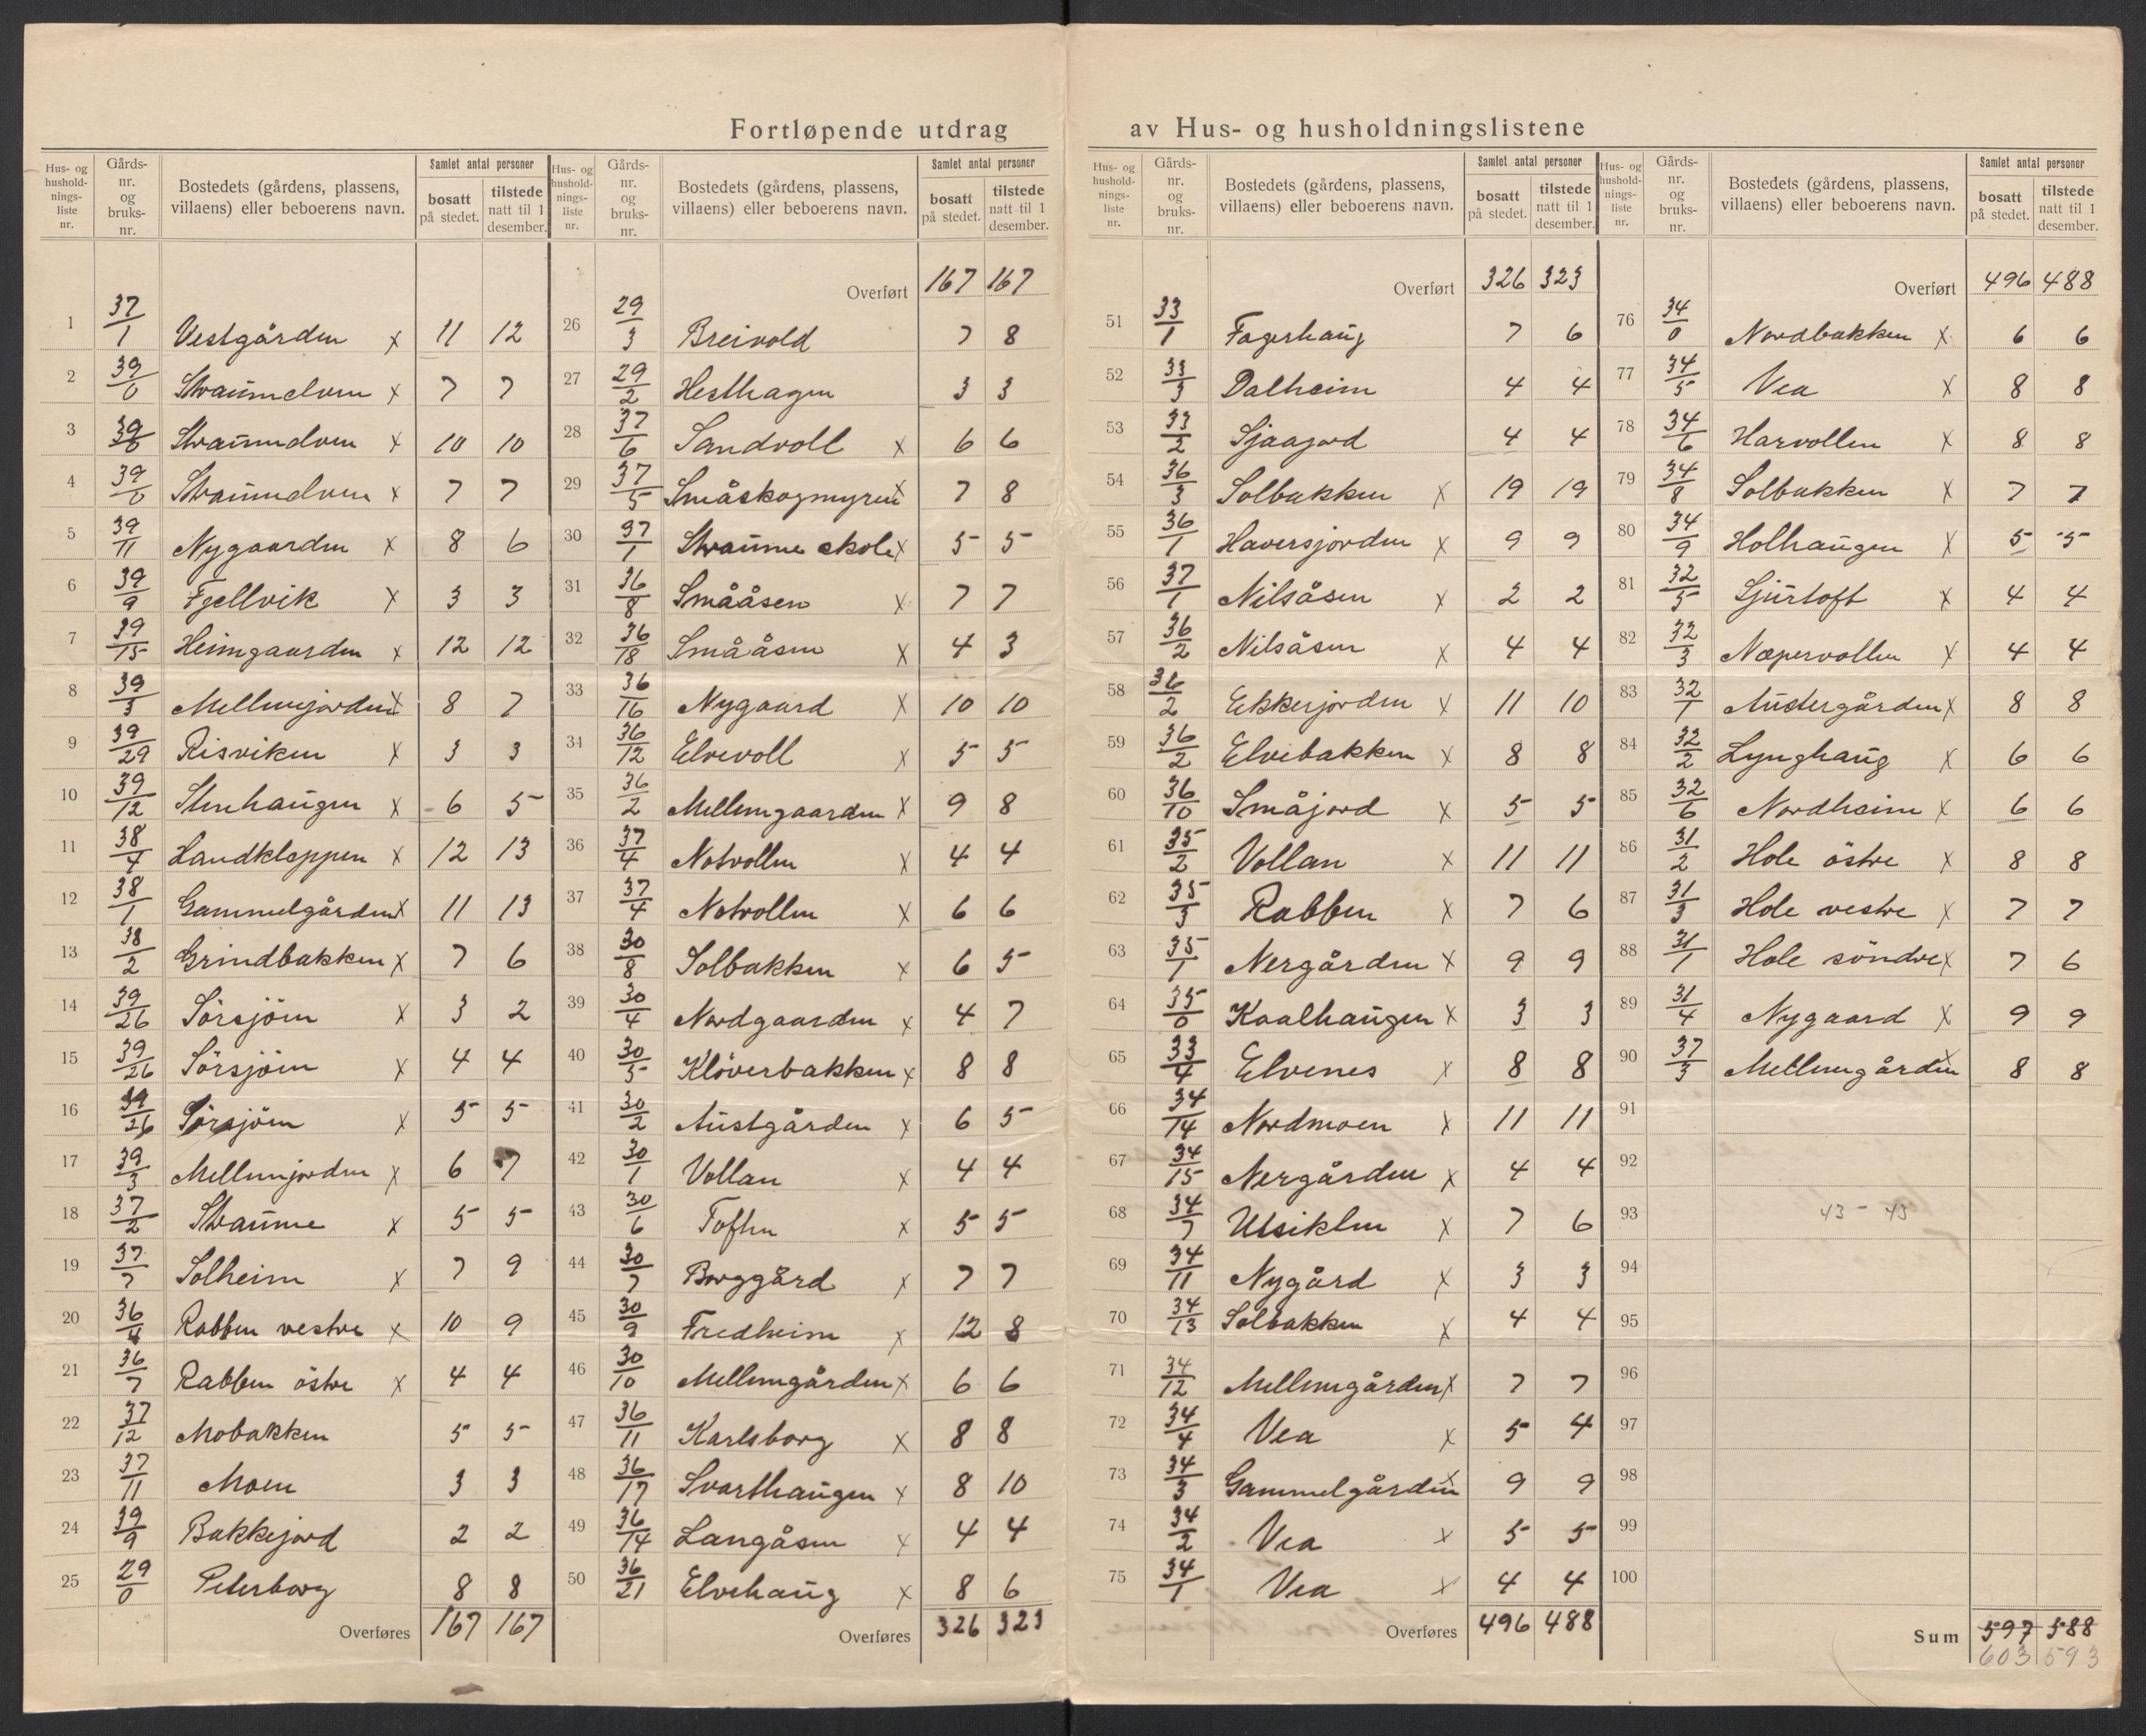 Fortløpende utdrag av Hus- og husholdningslistene
Hus- og husholdningsliste nr. | Gårds-nr. og bruks-nr. | Bostedets (gårdens, plassens, villaens) eller beboerens navn. | Samlet antal personer bosatt på stedet. | tilstede natt til 1 desember.
1 37/1 Vestgården x 11 12
2 39/0 Straumelven x 7 7
3 39/0 Straumelven x 10 10
4 39/0 Straumelven x 7 7
5 39/11 Nygaarden x 8 6
6 39/9 Fjellvik x 3 3
7 39/15 Heimgaarden x 12 12
8 39/3 Mellemjorden x 8 7
9 39/29 Risviken x 3 3
10 39/12 Stenhaugen x 6 5
11 38/4 Landkleppen x 12 13
12 38/1 Gammelgården x 11 13
13 38/2 Grindbakken x 7 6
14 39/26 Sörsjöen x 3 2
15 39/26 Sörsjöen x 4 4
16 39/26 Sörsjöen x 5 5
17 39/3 Mellemjorden x 6 7
18 37/2 Straume x 5 5
19 37/7 Solheim x 7 9
20 36/4 Rabben vestre x 10 9
21 36/7 Rabben östre x 4 4
22 37/12 Mobakken 5 5
23 37/11 Moen 3 3
24 39/9 Bakkejord 2 2
25 29/0 Petersborg 8 8
Overføres 167 167
Overført 167 167
26 29/3 Breivold 7 8
27 29/2 Hesthagen 3 3
28 37/6 Sandvoll x 6 6
29 37/5 Småskogmyren x 7 8
30 37/1 Straume skole x 5 5
31 36/8 Smååsen x 7 7
32 36/18 Smååsen x 4 3
33 36/16 Nygaard x 10 10
34 36/12 Elvevoll x 5 5
35 36/2 Mellemgaarden x 9 8
36 37/4 Notvollen x 4 4
37 37/4 Notvollen x 6 6
38 30/8 Solbakken x 6 5
39 30/4 Nordgaarden x 4 7
40 30/5 Klöverbakken x 8 8
41 30/2 Austgården x 6 5
42 30/1 Vollan x 4 4
43 30/6 Toften x 5 5
44 30/7 Borggård x 7 7
45 30/9 Fredheim x 12 8
46 30/10 Mellemgården x 6 6
47 36/11 Karlsborg x 8 8
48 36/17 Svarthaugen x 8 10
49 36/14 Langåsen x 4 4
50 36/21 Elvehaug x 8 6
Overføres 326 323
Overført 326 323
51 33/1 Fagerhaug 7 6
52 33/3 Dalheim 4 4
53 33/2 Sjaajord 4 4
54 36/3 Solbakken x 19 19
55 36/1 Haversjorden x 9 9
56 37/1 Nilsåsen x 2 2
57 36/2 Nilsåsen x 4 4
58 36/2 Ekkerjorden x 11 10
59 36/2 Elvebakken x 8 8
60 36/10 Småjord x 5 5
61 35/2 Vollan x 11 11
62 35/3 Rabben x 7 6
63 35/1 Nergården x 9 9
64 35/0 Kaalhaugen x 3 3
65 33/4 Elvenes x 8 8
66 34/14 Nordmoen x 11 11
67 34/15 Nergården x 4 4
68 34/7 Utsikten x 7 6
69 34/11 Nygård x 3 3
70 34/13 Solbakken x 4 4
71 34/12 Mellemgården x 7 7
72 34/4 Vea x 5 4
73 34/3 Gammelgården x 9 9
74 34/2 Vea x 5 5
75 34/1 Vea x 4 4
Overføres 496 488
Overført 496 488
76 34/0 Nordbakken x 6 6
77 34/5 Vea x 8 8
78 34/6 Harvollen x 8 8
79 34/8 Solbakken x 7 7
80 34/9 Holhaugen x 5 5
81 32/5 Sjurtoft x 4 4
82 32/3 Næpervollen x 4 4
83 32/1 Austergården x 8 8
84 32/2 Lynghaug x 6 6
85 32/6 Nordheim x 6 6
86 31/2 Hole östre x 8 8
87 31/3 Hole vestre x 7 7
88 31/1 Hole söndre x 7 6
89 31/4 Nygaard x 9 9
90 37/3 Mellemgården x 8 8
91
92
93 43 - 43
94
95
96
97
98
99
100
Sum 597 588
603 593